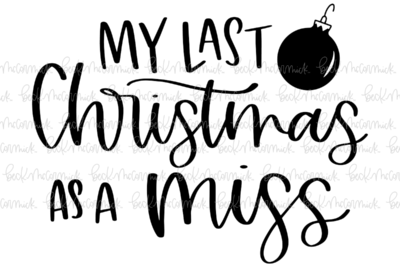 MY LAST
Christmas
AS A miss